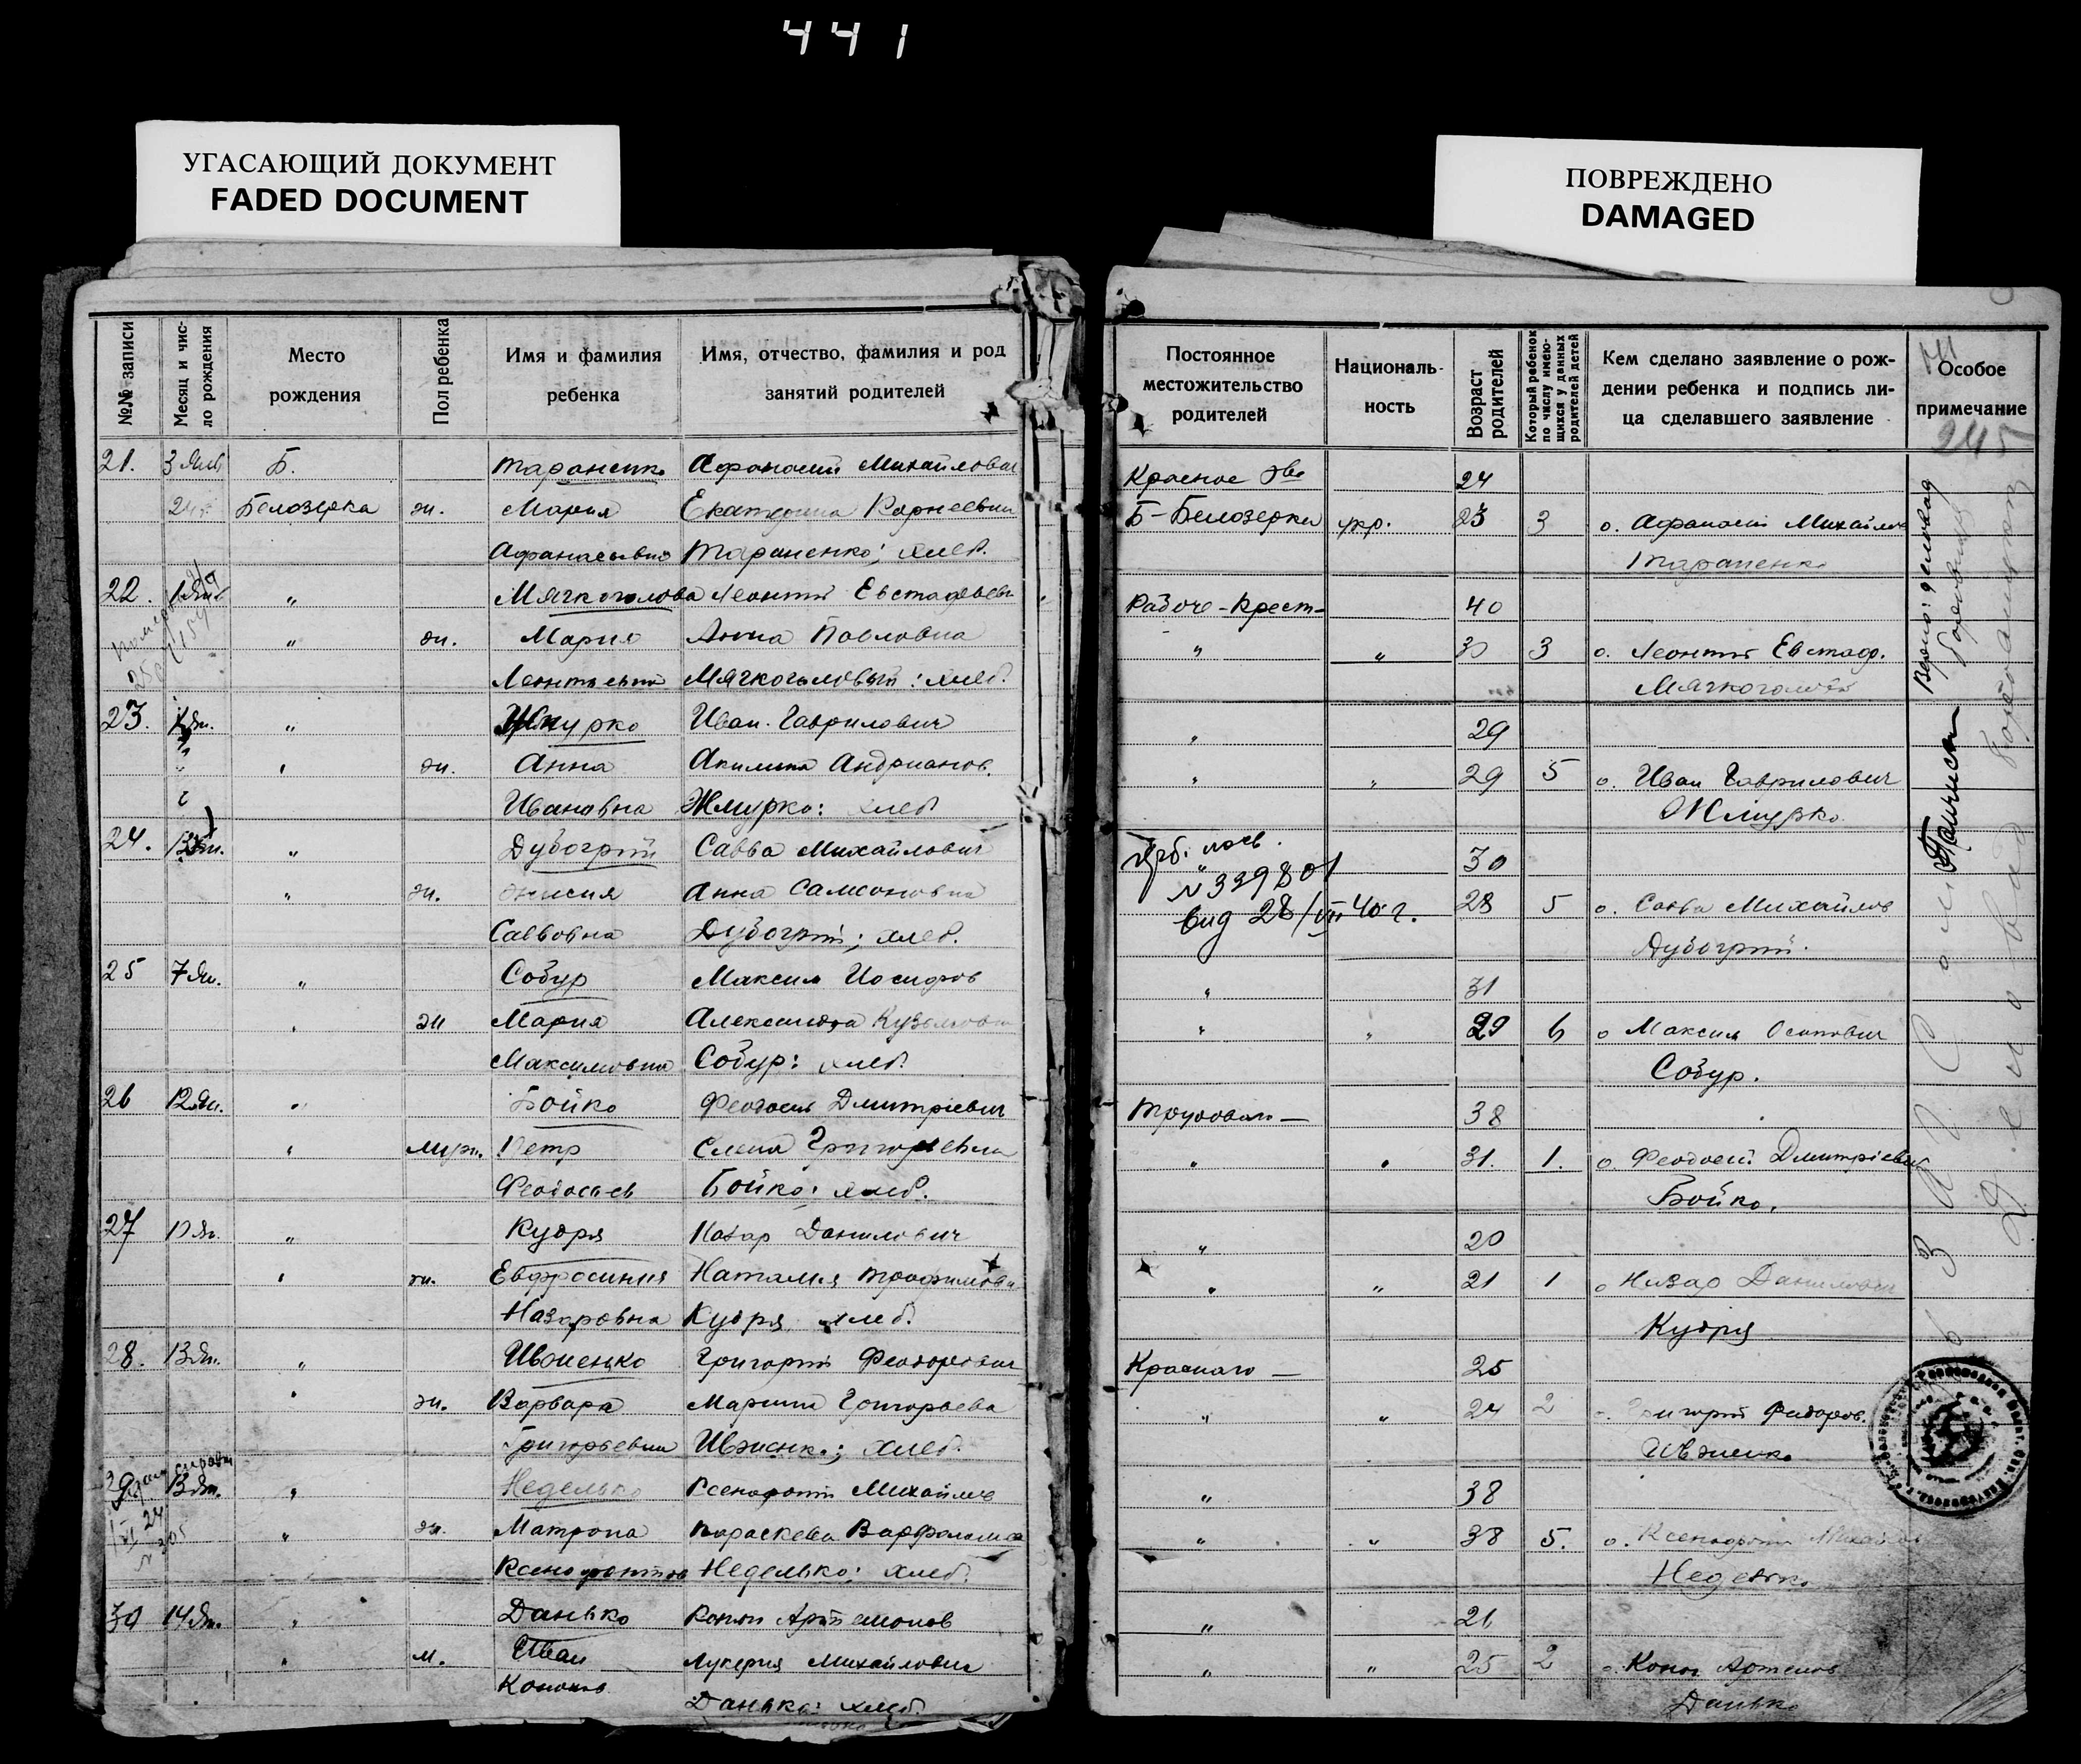 441
УГАСАЮЩИЙ ДОКУМЕНТ
FADED DOCUMENT
ПОВРЕЖДЕНО
DAMAGED
№№ записи
Месяц и чис-
ло рождения
Место
рождения
Пол ребенка
Имя и фамилия
ребенка
Имя, отчество, фамилия и род
занятий родителей
Постоянное
местожительство
родителей
Националь-
ность
Возраст
родителей
Который ребенок
по числу имею-
щихся у данных
родителей детей
Кем сделано заявление о рож-
дении ребенка и подпись ли-
ца сделавшего заявление
Особое
примечание
245
21. 3 Янв Б. Тараненко Афанасий Михайлович Красное 24
Белозерка ж. Мария Екатерина Корнеевна Б-Белозерка укр. 23 3 о. Афанасий Михайлов
Афанасьевна Тараненко; хлеб. Тараненко
22. " Мягкоголова Леонтий Евстафьев Рабоче-Крест- 40
" ж. Мария Анна Павловна " " 30 3 о. Леонтий Евстаф.
Леонтьевна Мягкоголовый: хлеб. Мягкоголовый
23. " Иван Гаврилович " 29
" ж. Анна Акилина Андрианов. " " 29 5 о. Иван Гаврилович
Ивановна Жмурко: хлеб Жмурко
24. " Дубогрий Савва Михайлович 30
" ж. Анна Самсоновна 28 5 о. Савва Михайлов
Саввовна Дубогрий; хлеб. Дубогрий.
№ 339801
28/VII 40 г.
25 7 Ян. " Собур Максим Иосифов " 31
" ж Мария Александра Кузьмовна " " 29 6 о Максим Осипович
Максимовна Собур: хлеб. Собур.
26 12 Ян. " Бойко Феодосий Дмитріевич Трудовая — 38
" муж. Петр Елена Григорьевна " " 31. 1. о. Феодосий Дмитріевич
Феодосьев Бойко: хлеб. Бойко.
27 " Кудря Назар Данилович " 20
" ж. Евфросиния Наталия Трофимовна " " 21 1 о Назар Данилович
Назаровна Кудря хлеб. Кудря
28. 13 Ян. " Ивженко Григорий Феодорович Краснаго — 25
" ж. Варвара Марина Григорьева " " 24 2 Григорий Федоров.
Григорьевна Ивженко; хлеб. Ивженко
29 13 Ян. " Неделько Ксенофонт Михайлов " 38
" ж. Матрона Параскева Варфоломеева " " 38 5. о. Ксенофонт Михайлов
Ксенофонтов Неделько: хлеб. Неделько
30 14 Ян. " Данько Конон Артемонов " 21
" м. Иван Лукерия Михайловна " " 25 2 о. Конон Артемов
Кононов Данько: хлеб. Данько